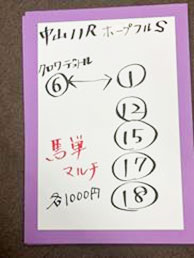 中山11R ホープフルS
クロワデュノール
⑥ ↔ ①
⑫
⑮
⑰
⑱
馬単
マルチ
各1000円